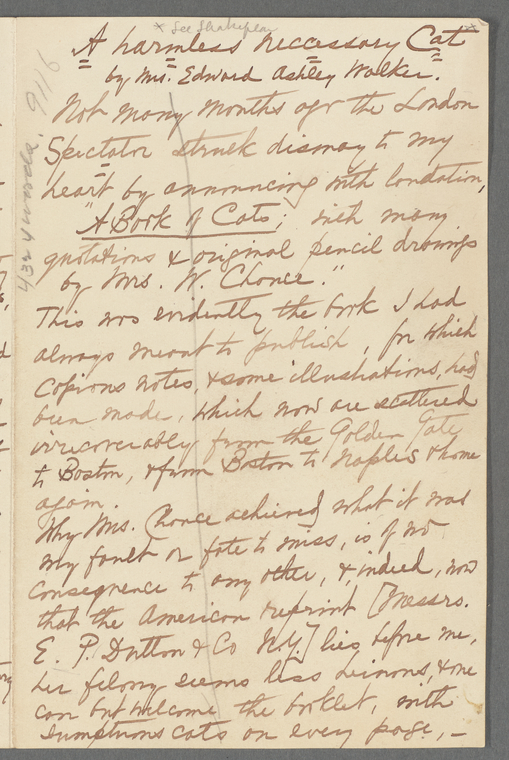 x See Shakespear x
A harmless neccessary Cat
by Mrs. Edward Ashley Walker.
Not many months ago the London
Spectator struck dismay to my
heart by announcing with laudation,
"A Book of Cats; with many
quotations & original pencil drawings
by Mrs. W. Chance."
This was evidently the book I had
always meant to publish, for which
copious notes, & some illustrations, had
been made, which now are scattered
irrecoverably from the Golden Gate
to Boston, & from Boston to Naples & home
again.
Why Mrs. Chance achieved what it was
my fault or fate to miss, is of no
consequence to any other, &, indeed, now
that the American reprint [Messrs.
E. P. Dutton & Co N.Y.] lies before me,
her felony seems less heinous, & one
can but welcome the booklet, with
sumptuous cats on every page, —
4324 words. 9116